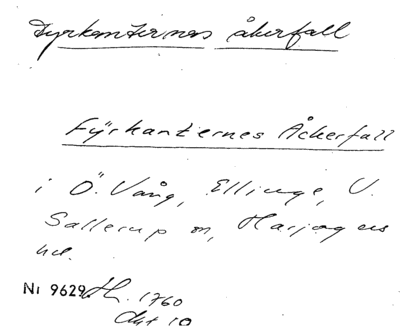 Fyrkanternas åkerfall
Fÿrkanternes Åckerfall
i Ö. Vång, Ellinge, V.
Sallerup sn, Harjagers
hd.
Nr 9629 Lh. 1760
Akt 10